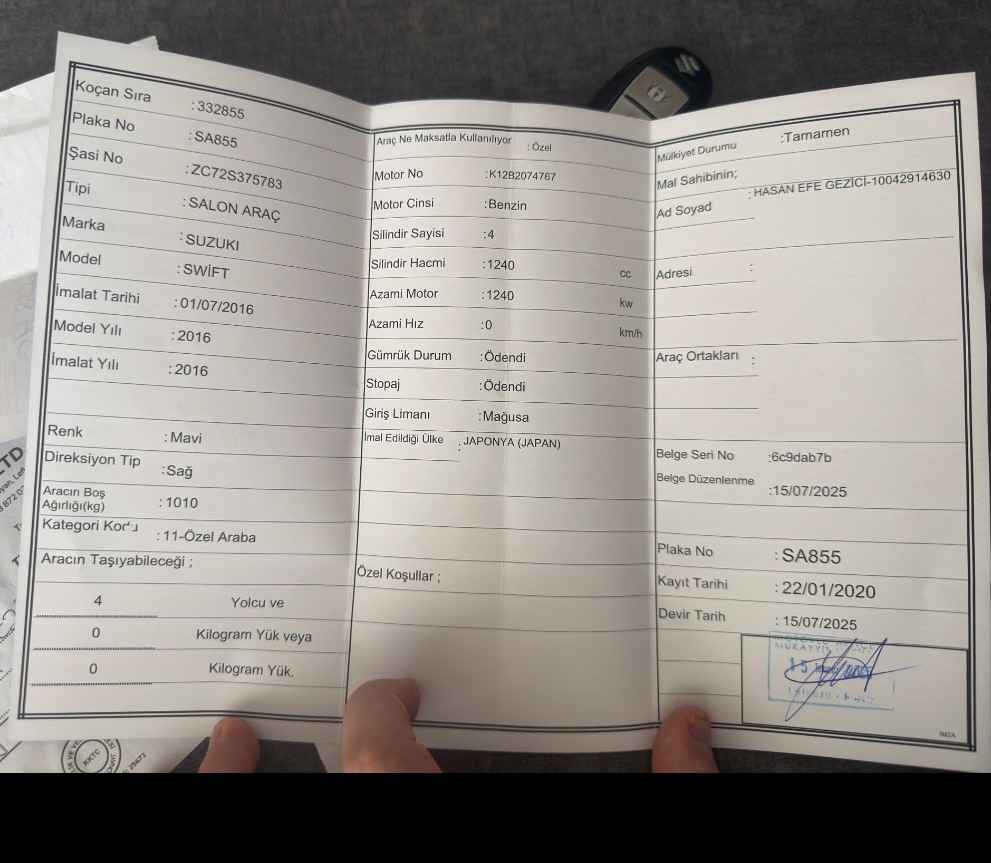 Koçan Sıra :332855
Plaka No :SA855
Şasi No :ZC72S375783
Tipi :SALON ARAÇ
Marka :SUZUKI
Model :SWİFT
İmalat Tarihi :01/07/2016
Model Yılı :2016
İmalat Yılı :2016
Renk :Mavi
Direksiyon Tip :Sağ
Aracın Boş
Ağırlığı(kg) :1010
Kategori Kodu :11-Özel Araba
Aracın Taşıyabileceği ;
4 Yolcu ve
0 Kilogram Yük veya
0 Kilogram Yük.
Araç Ne Maksatla Kullanılıyor :Özel
Motor No :K12B2074767
Motor Cinsi :Benzin
Silindir Sayisi :4
Silindir Hacmi :1240 cc
Azami Motor :1240 kw
Azami Hız :0 km/h
Gümrük Durum :Ödendi
Stopaj :Ödendi
Giriş Limanı :Mağusa
İmal Edildiği Ülke :JAPONYA (JAPAN)
Özel Koşullar ;
Mülkiyet Durumu :Tamamen
Mal Sahibinin;
Ad Soyad :HASAN EFE GEZİCİ-10042914630
Adresi :
Araç Ortakları :
Belge Seri No :6c9dab7b
Belge Düzenlenme :15/07/2025
Plaka No :SA855
Kayıt Tarihi :22/01/2020
Devir Tarih :15/07/2025
KKTC